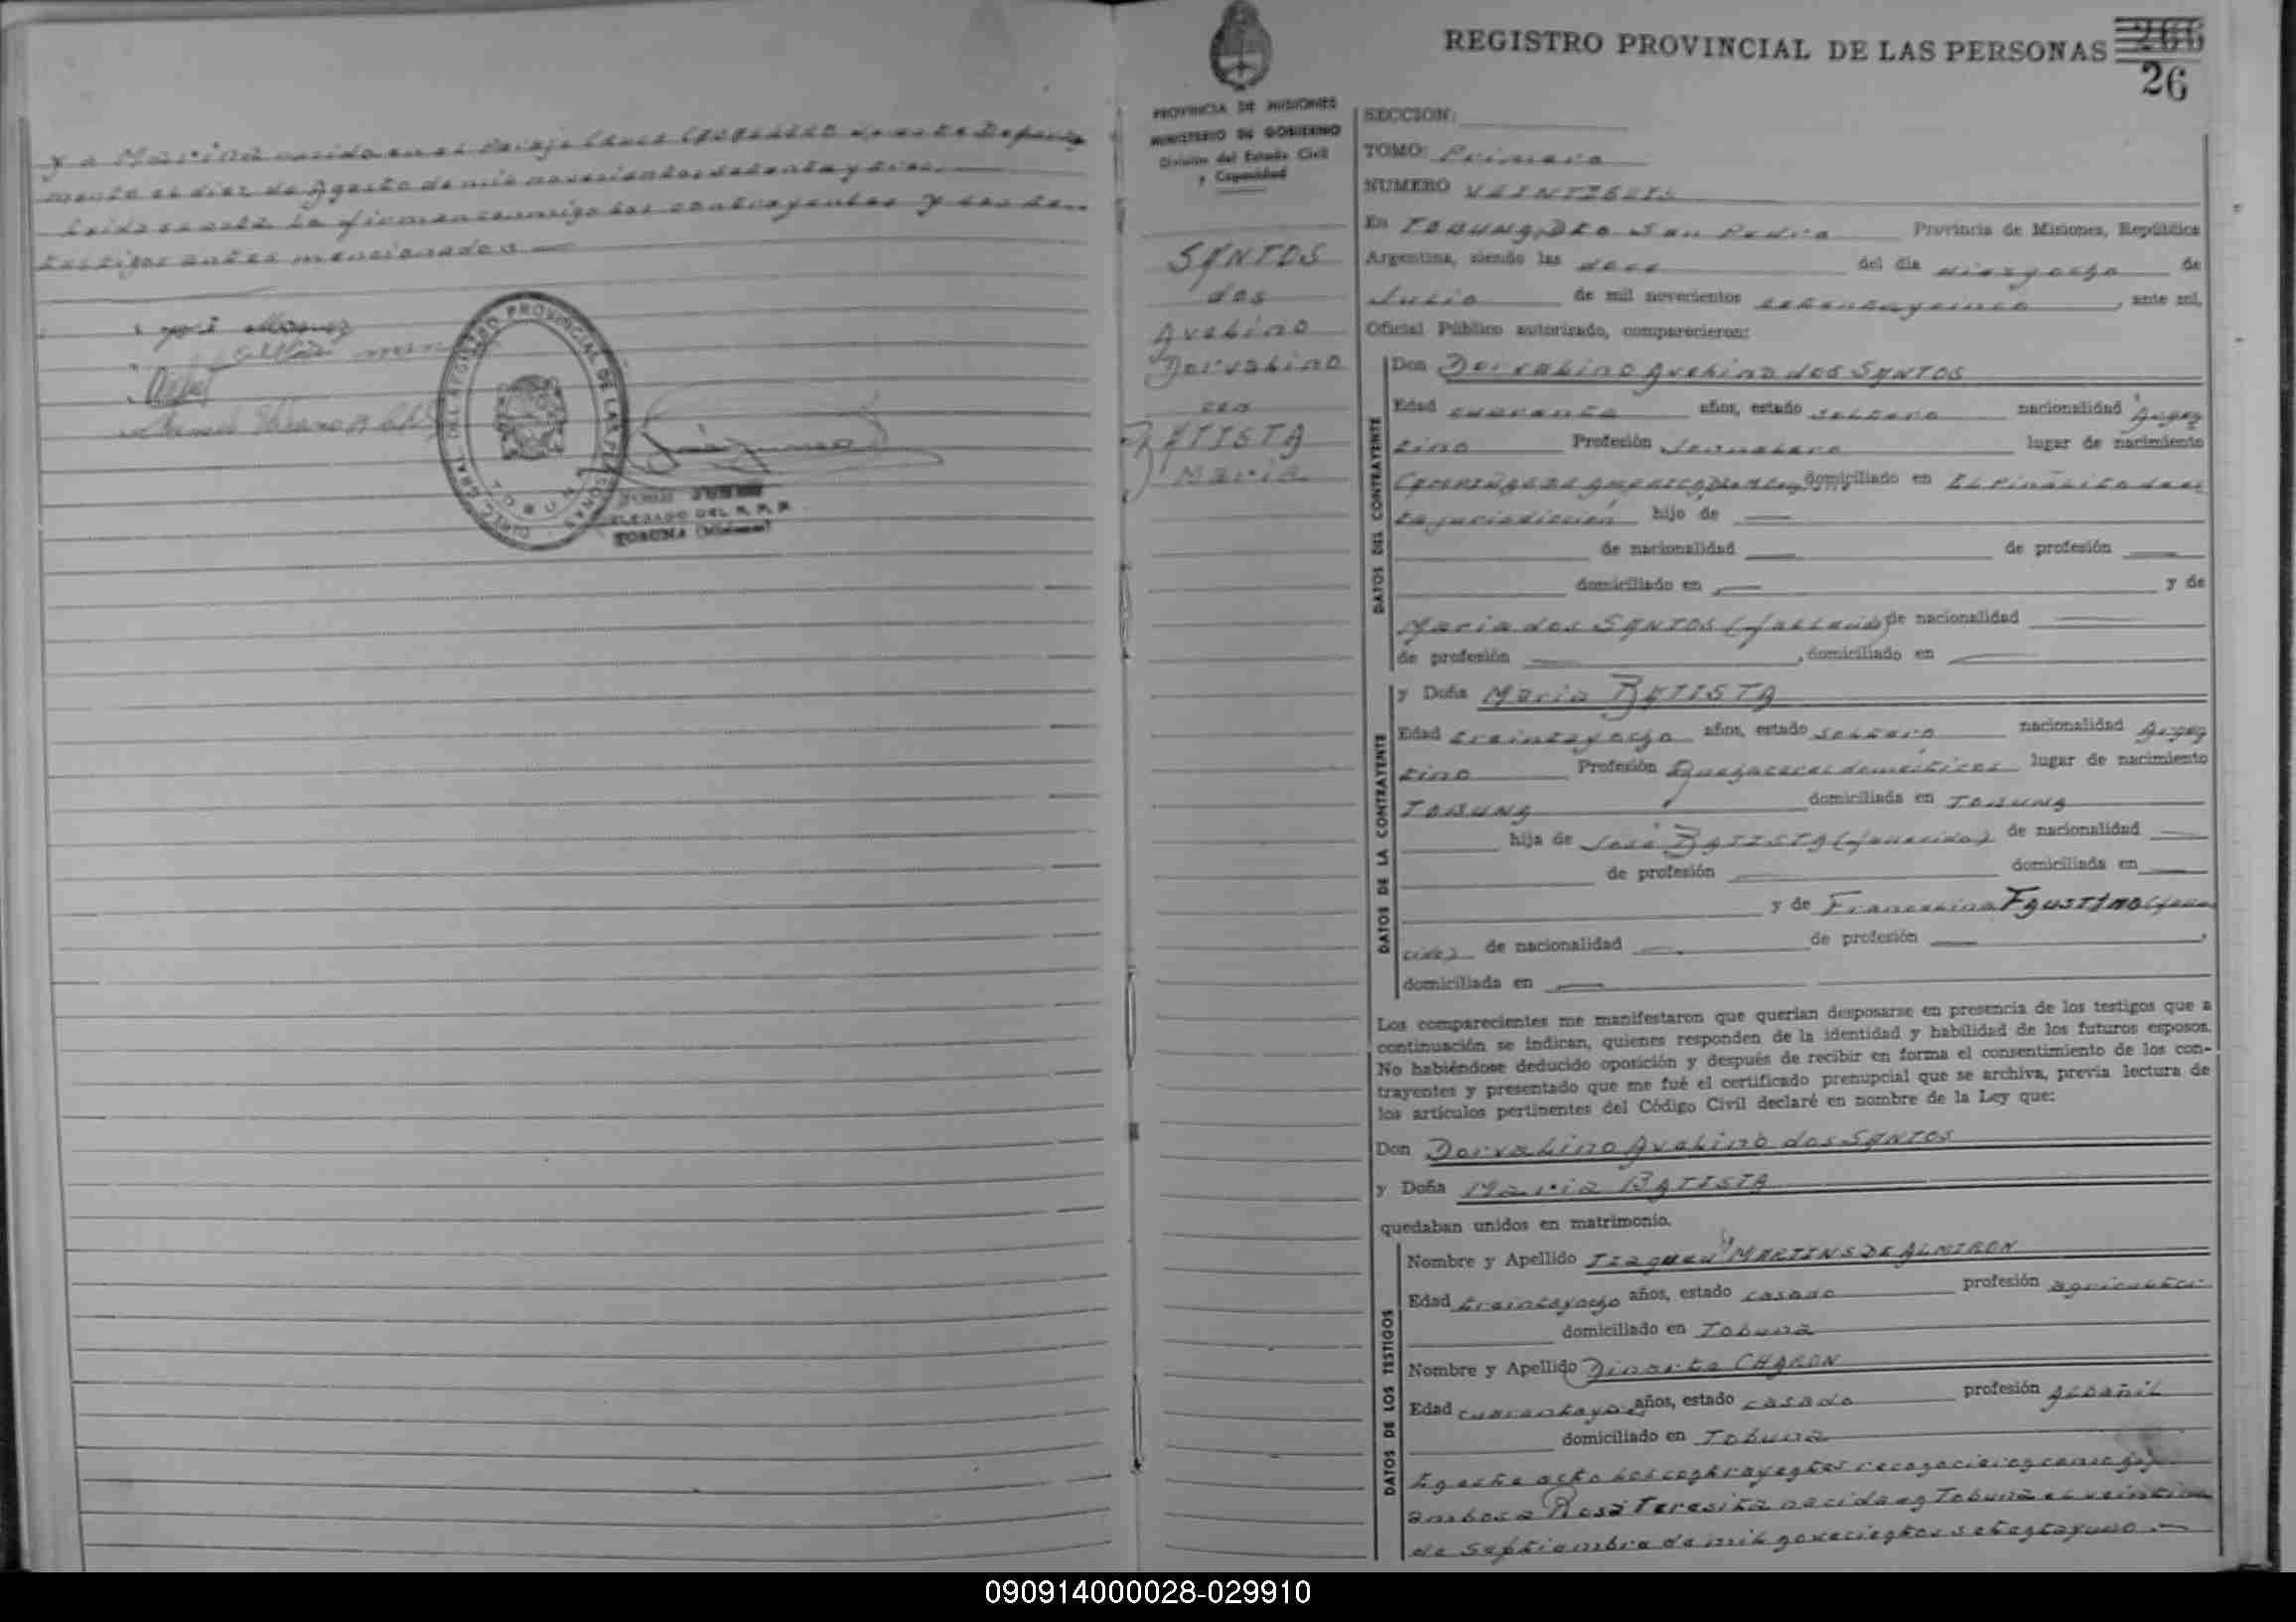 y a Marina nacida en el Paraje Cruce de este Departa
mento el diez de Agosto de mil novecientos setenta y tres.
Leida el acta la firman conmigo los contrayentes y los tes
testigos antes mencionados
DIREC. GRAL. DEL REGISTRO PROVINCIAL DE LAS PERSONAS
TOBUNA
DELEGADO DEL R. P. P.
TOBUNA (Misiones)
REGISTRO PROVINCIAL DE LAS PERSONAS 266
26
PROVINCIA DE MISIONES
MINISTERIO DE GOBIERNO
División del Estado Civil
y Capacidad
SANTOS
dos
Avelino
Dorvalino
con
BATISTA
Maria
SECCION:
TOMO: Primero
NUMERO VEINTISEIS
En TOBUNA, Dto San Pedro Provincia de Misiones, República
Argentina, siendo las doce del día diez y ocho de
Julio de mil novecientos setenta y cinco, ante mí,
Oficial Público autorizado, comparecieron:
DATOS DEL CONTRAYENTE
Don Dorvalino Avelino dos SANTOS
Edad cuarenta años, estado soltero nacionalidad Argen
tino Profesión Jornalero lugar de nacimiento
domiciliado en El Pinalito de es
ta jurisdicción hijo de
de nacionalidad de profesión
domiciliado en y de
Maria dos SANTOS (fallecida) de nacionalidad
de profesión , domiciliado en
DATOS DE LA CONTRAYENTE
y Doña Maria BATISTA
Edad treinta y ocho años, estado soltera nacionalidad Argen
tino Profesión Quehaceres domésticos lugar de nacimiento
TOBUNA domiciliada en TOBUNA
hija de José BATISTA (fallecido) de nacionalidad
de profesión domiciliada en
y de Francelina FAUSTINO (falle
cida) de nacionalidad de profesión ,
domiciliada en
Los comparecientes me manifestaron que querían desposarse en presencia de los testigos que a
continuación se indican, quienes responden de la identidad y habilidad de los futuros esposos.
No habiéndose deducido oposición y después de recibir en forma el consentimiento de los con-
trayentes y presentado que me fué el certificado prenupcial que se archiva, previa lectura de
los artículos pertinentes del Código Civil declaré en nombre de la Ley que:
Don Dorvalino Avelino dos SANTOS
y Doña Maria BATISTA
quedaban unidos en matrimonio.
DATOS DE LOS TESTIGOS
Nombre y Apellido MARTINS DE ALMIRON
Edad treinta y ocho años, estado casado profesión agricultor
domiciliado en Tobuna
Nombre y Apellido Dinarte CHARON
Edad años, estado casado profesión Albañil
domiciliado en Tobuna
En este acto los contrayentes reconocieron como hija
ambos a Rosa Teresita nacida en Tobuna el
de Septiembre de mil novecientos setenta y uno
090914000028-029910